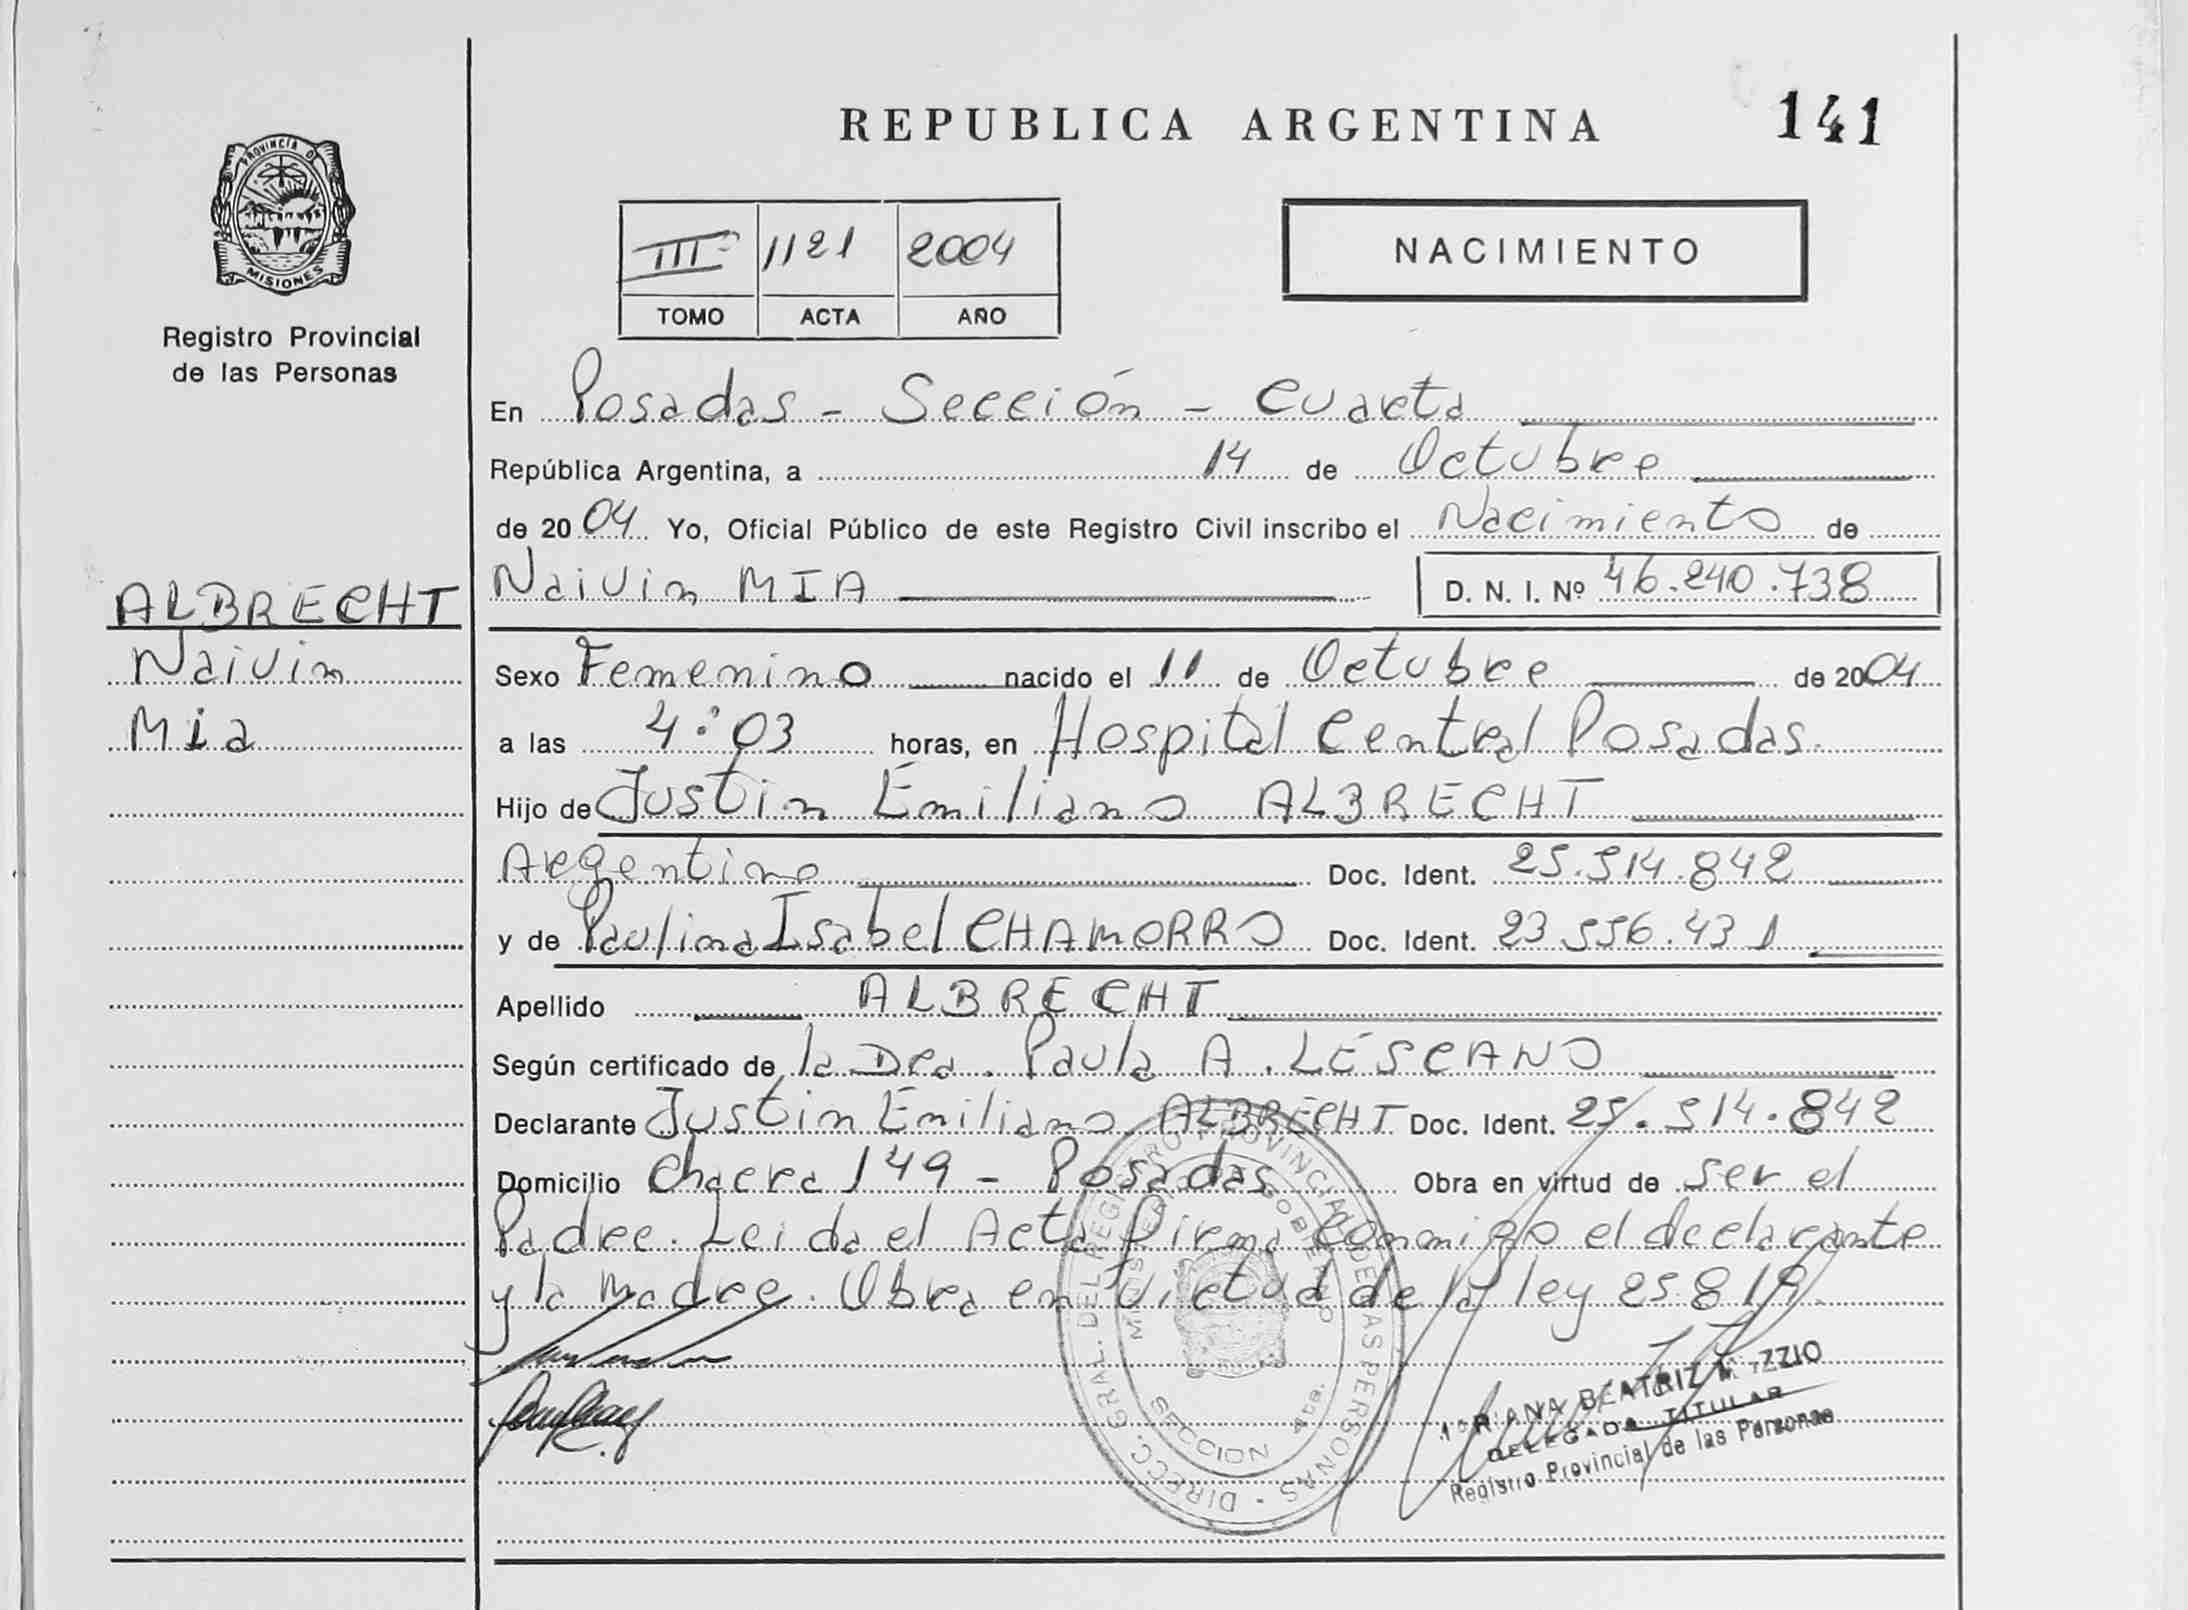 REPUBLICA ARGENTINA
141
PROVINCIA D
MISIONES
Registro Provincial
de las Personas
III 1121 2004
TOMO ACTA AÑO
NACIMIENTO
En Posadas - Sección - Cuarta
República Argentina, a 14 de Octubre
de 2004 Yo, Oficial Público de este Registro Civil inscribo el Nacimiento de
ALBRECHT
Naivin
Mia
Naivin MIA D. N. I. Nº 46.240.738
Sexo Femenino nacido el 11 de Octubre de 2004
a las 4:03 horas, en Hospital Central Posadas.
Hijo de Justin Emiliano ALBRECHT
Argentino Doc. Ident. 25.514.842
y de Paulina Isabel CHAMORRO Doc. Ident. 23 556.431
Apellido ALBRECHT
Según certificado de la Dra. Paula A. LESCANO
Declarante Justin Emiliano ALBRECHT Doc. Ident. 25.514.842
Domicilio Chacra 149 - Posadas Obra en virtud de ser el
Padre. Leida el Acta firma conmigo el declarante
y la madre. Obra en virtud de la ley 25.819.
DIRECC. GRAL. DEL REGISTRO PROVINCIAL DE LAS PERSONAS
GOBIERNO
SECCION 4ta.
BEATRIZ
DELEGADA TITULAR
Registro Provincial de las Personas